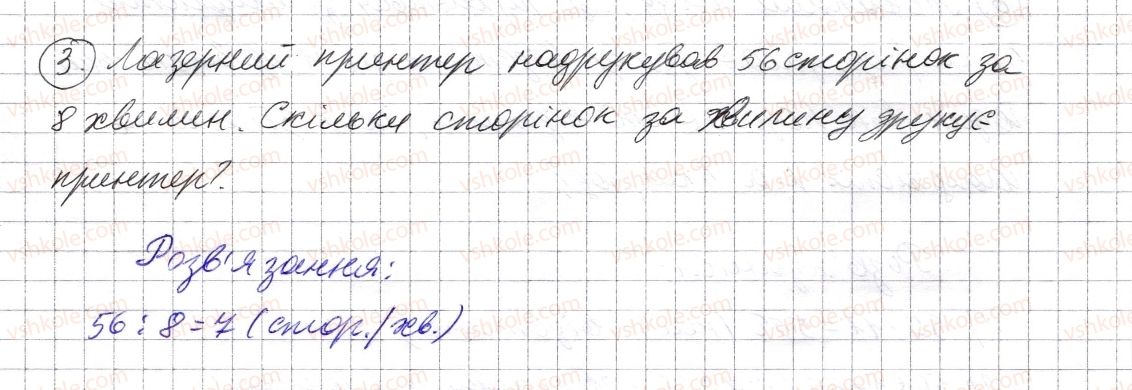 3. Лазерний принтер надрукував 56 сторінок за
8 хвилин. Скільки сторінок за хвилину друкує
принтер?
Розв'язання:
56 : 8 = 7 (стор./хв.)